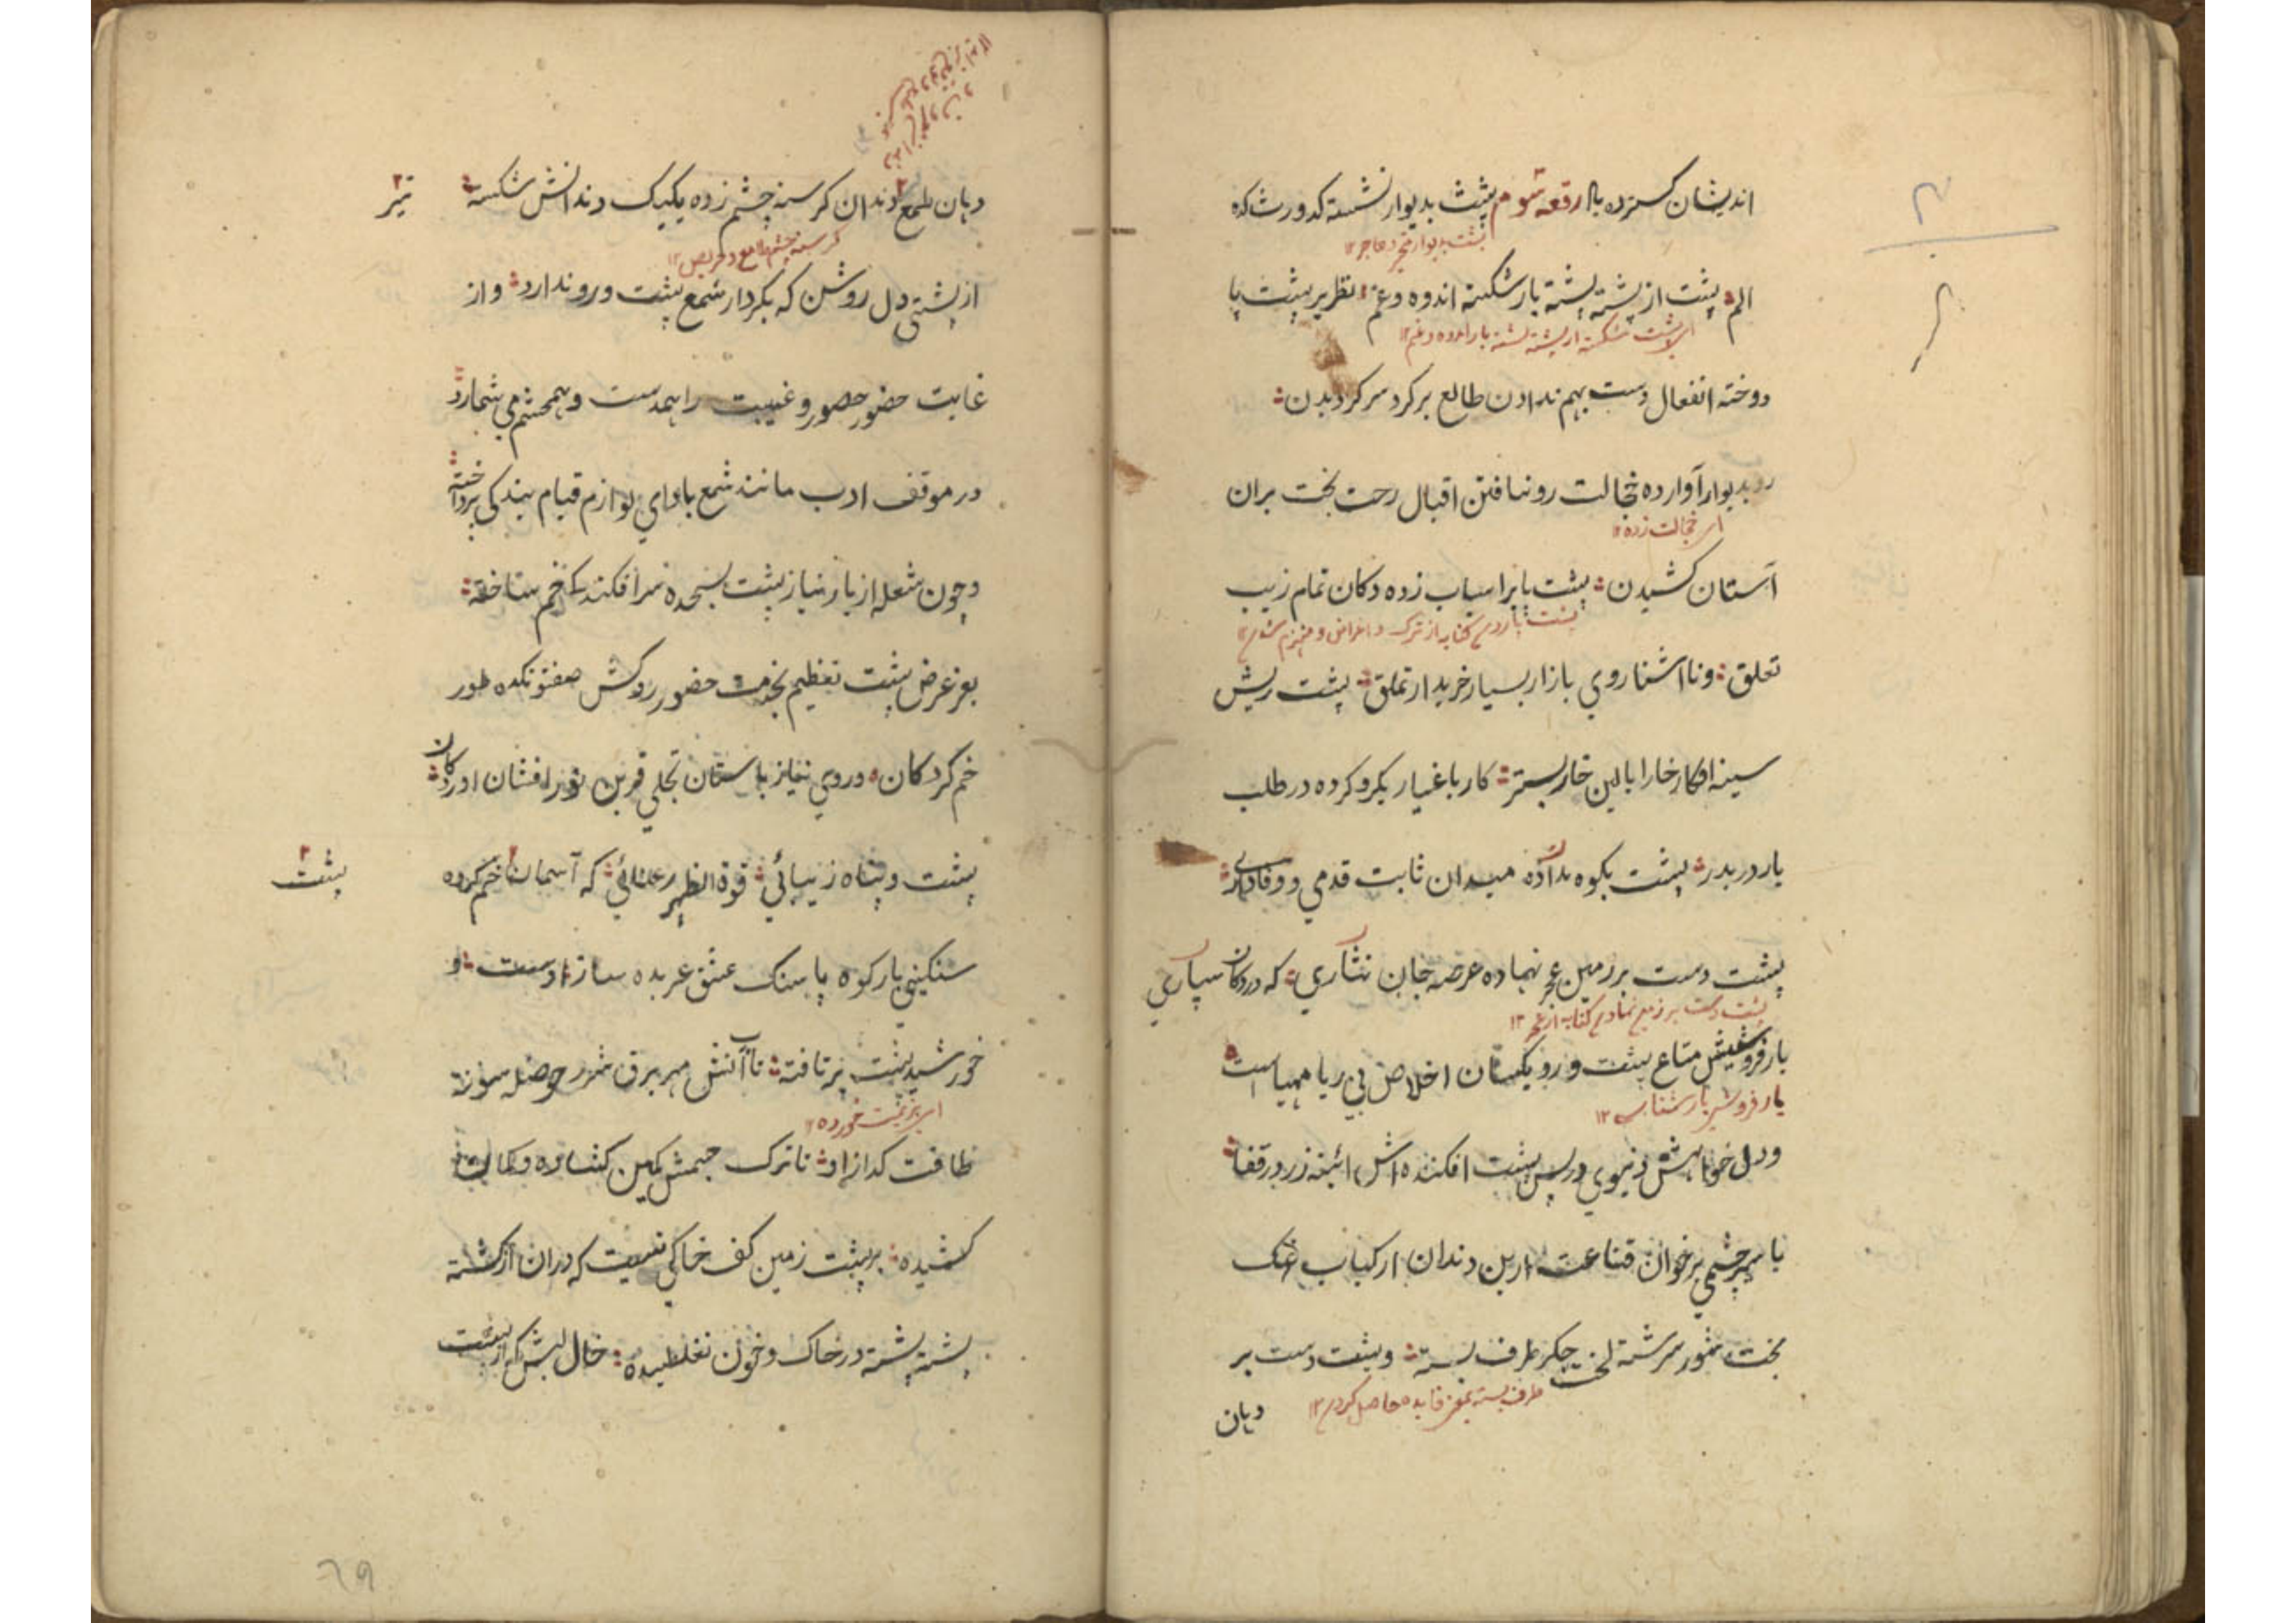 اندیشان کسترده باد رقعه سوم پشت بدیوار نشسته کدورت کده
پشت بدیوار متحیر و عاجز ۱۲
الم پشت از پشته پشته بار شکسته اندوه و غم نظر بر پشت پا
ای پشت شکسته از پشته پشته بار اندوه و غم ۱۲
دوخته انفعال دست بهم ندادن طالع بر کرد سر کردیدن
رو بدیوار آوارده خجالت رو نیافتن اقبال رخت بخت بران
ای خجالت زده ۱۲
آستان کشیدن پشت پا بر اسباب زده دکان تمام زیب
پشت پا زدن کنایه از ترک و اعراض و منهزم شدن ۱۲
تعلق و ناآشنا روی بازار بسیار خریدار تملق پشت ریش
سینه افکار خارا بالین خار بستر کار با غیار یکرو کرده در طلب
یار در بدر پشت بکوه داده میدان ثابت قدمی و وفاداری
پشت دست بر زمین عجز نهاده عرصه جان نثاری که در دکان سپاری
پشت دست بر زمین نهادن کنایه از عجز ۱۲
بار فروشیش متاع پشت و رو یکسان اخلاص بی ریا مهیاست
یار فروش یار شناس ۱۲
و دل خواهش دنیوی در پس پشت افکنده اش ائینه زر در قفا
با سیر چشمی بر خوان قناعت از بن دندان از کباب نمک
بخت شور سرشته لخت جکر طرف بسته و پشت دست بر
طرف بستن بمعنی فایده حاصل کردن ۱۲
دهان
دهان طمع دندان کرسنه چشم زده یکیک دندانش شکسته
تیز
کرسنه چشم طامع و حریص ۱۲
از پشتی دل روشن که بکردار شمع پشت و رو ندارد و از
غایت حضور حضور و غیبت را همدست و همچشم می شمارد
در موقف ادب مانند شمع باداي لوازم قیام بندکی پرداخته
و چون شعله از بار نیاز پشت بسجده سرافکندکی خم ساخته
بعز عرض پشت تعظیم بخدمت حضور روکش صفوتکده طور
خم کردکان و روی نیاز باستان تجلی قرین نور افشان اوردکان
پشت و پناه زیبائی قوة الظهر رعنائی که آسمان خم کرده
پشت
سنکینی بار کوه پا سنک عشق عربده ساز اوست و
خورشید پشت بر تافته تاب آتش مهر برق شرر حوصله سوز
ای هزیمت خورده ۱۲
طاقت کداز او تا ترک چشمش کمین کشاده و کمان
کشیده بر پشت زمین کف خاکی نیست که در ان از کشته
پشته پشته در خاک و خون نغلطیده خال لبش که از پشت
۶۹